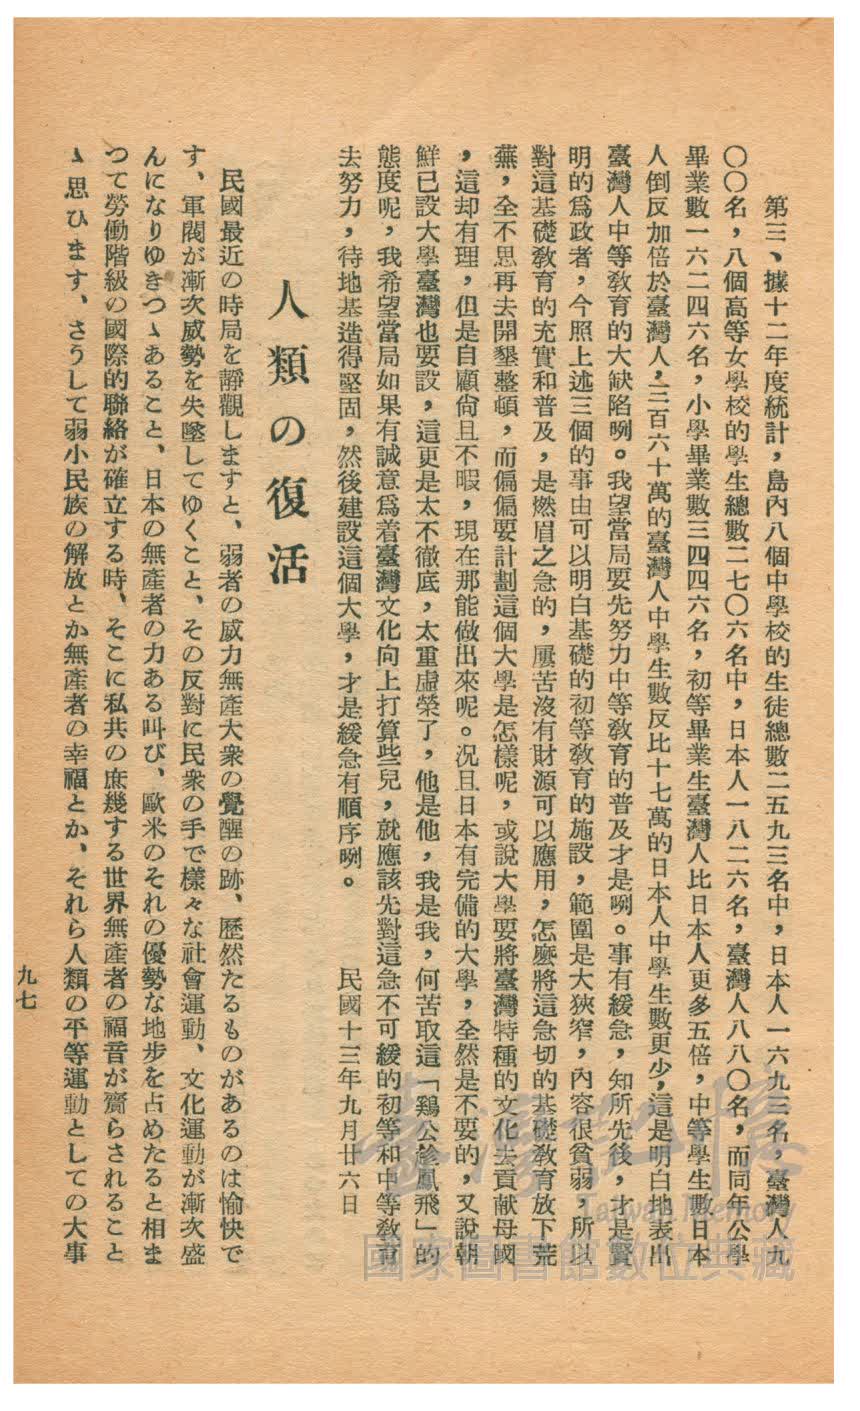 第三、據十二年度統計，島內八個中學校的生徒總數二五九三名中，日本人一六九三名，臺灣人九
〇〇名，八個高等女學校的學生總數二七〇六名中，日本人一八二六名，臺灣人八八〇名，而同年公學
畢業數一六二四六名，小學畢業數三四四六名，初等畢業生臺灣人比日本人更多五倍，中等學生數日本
人倒反加倍於臺灣人，三百六十萬的臺灣人中學生數反比十七萬的日本人中學生數更少，這是明白地表出
臺灣人中等教育的大缺陷咧。我望當局要先努力中等教育的普及才是咧。事有緩急，知所先後，才是賢
明的爲政者，今照上述三個的事由可以明白基礎的初等教育的施設，範圍是大狹窄，內容很貧弱，所以
對這基礎敎育的充實和普及，是燃眉之急的，屢苦沒有財源可以應用，怎麼將這急切的基礎敎育放下荒
蕪，全不思再去開墾整頓，而偏偏要計劃這個大學是怎樣呢，或說大學要將臺灣特種的文化去貢献母國
，這却有理，但是自顧尙且不暇，現在那能做出來呢。况且日本有完備的大學，全然是不要的，又說朝
鮮已設大學臺灣也要設，這更是太不徹底，太重虛榮了，他是他，我是我，何苦取這「鷄公趁鳳飛」的
態度呢，我希望當局如果有誠意爲着臺灣文化向上打算些兒，就應該先對這急不可緩的初等和中等敎育
去努力，待地基造得堅固，然後建設這個大學，才是緩急有順序咧。　民國十三年九月廿六日
人類の復活
民國最近の時局を靜觀しますと、弱者の威力無產大衆の覺醒の跡、歷然たるものがあるのは愉快で
す、軍閥が漸次威勢を失墜してゆくこと、その反對に民衆の手で樣々な社會運動、文化運動が漸次盛
んになりゆきつゝあること、日本の無產者の力ある叫び、歐米のそれの優勢な地步を占めたると相ま
つて勞働階級の國際的聯絡が確立する時、そこに私共の庶幾する世界無產者の福音が齎らされること
ゝ思ひます、さうして弱小民族の解放とか無產者の幸福とか、それら人類の平等運動としての大事
九七
臺灣記憶
Taiwan Memory
國家圖書館數位典藏